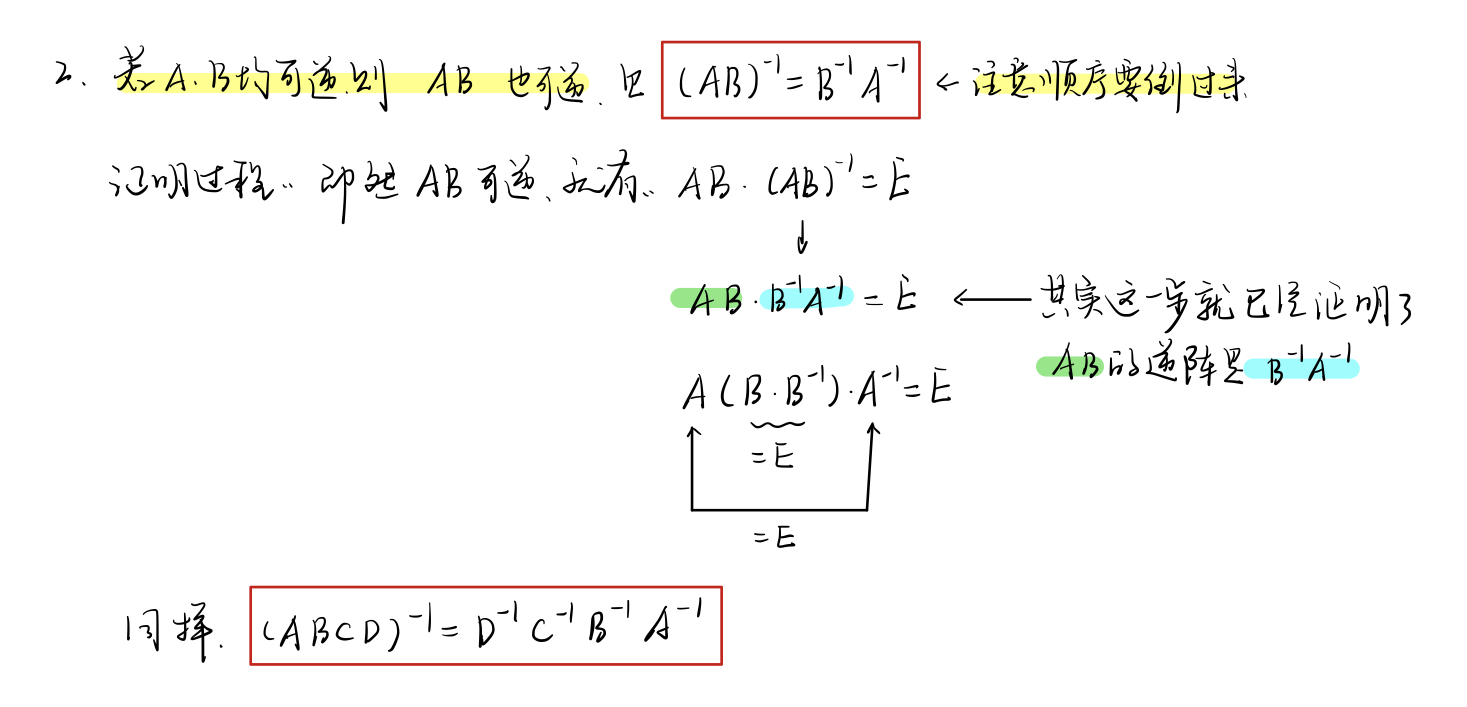 2. 若A.B均可逆.则 AB 也可逆.且 (AB)⁻¹=B⁻¹A⁻¹ ← 注意顺序要倒过来
证明过程: 即然 AB 可逆、就有: AB·(AB)⁻¹=E
↓
AB·B⁻¹A⁻¹=E ← 其实这一步就已经证明了
AB的逆阵是 B⁻¹A⁻¹
A(B·B⁻¹)·A⁻¹=E
=E
=E
同样. (ABCD)⁻¹=D⁻¹C⁻¹B⁻¹A⁻¹